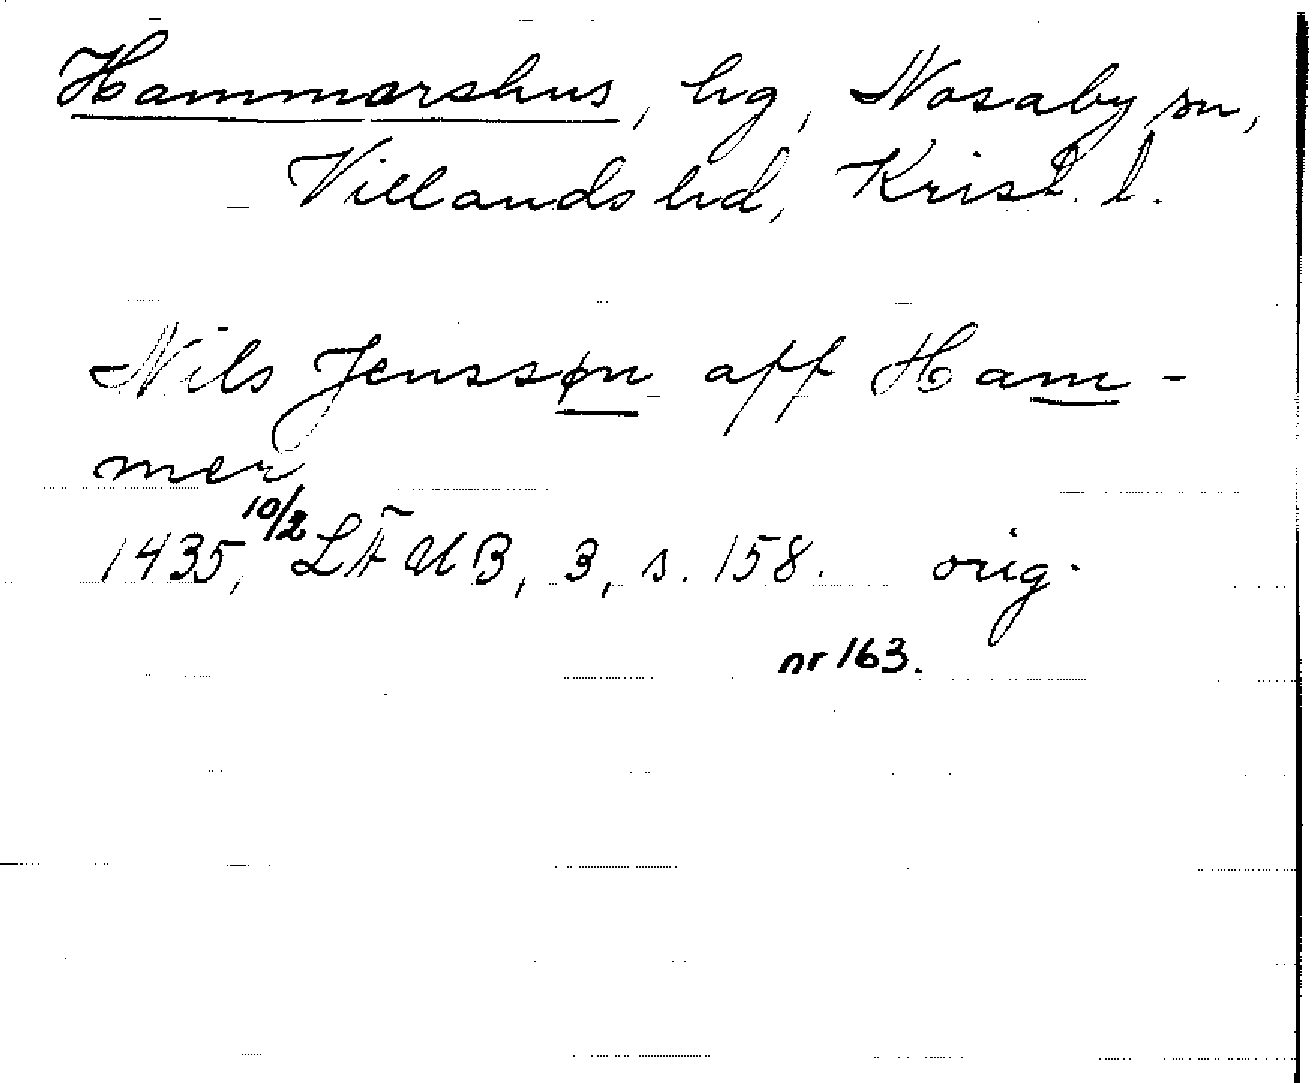 Hammarshus, hg, Nosaby sn,
Villands hd, Krist. l.
Nils Jenssøn aff Ham-
mer
1435, 10/2 LÄUB, 3, s. 158. orig.
nr 163.